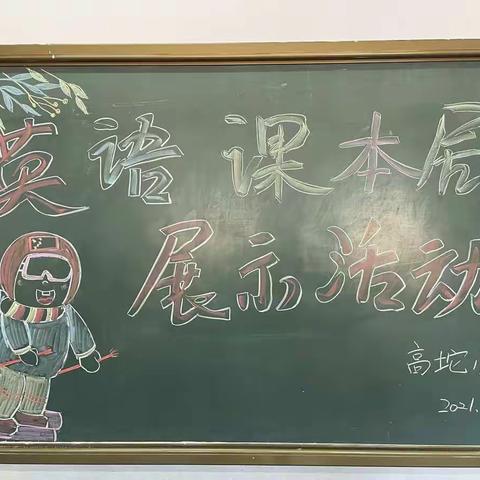 英语课本剧
展示活动
高坨
2021.